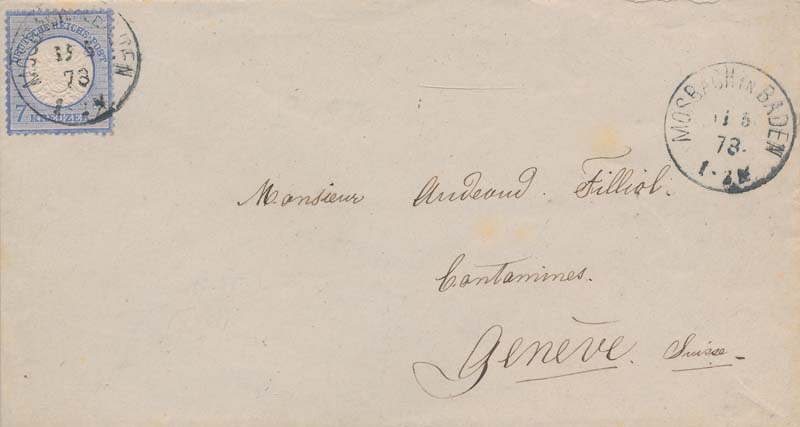 DEUTSCHE REICHS-POST
7 KREUZER
15
5
73
1-2N
MOSBACH IN BADEN
5
73.
1-2N
Monsieur Audeoud. Filliol.
Contamines.
Genève. Suisse_